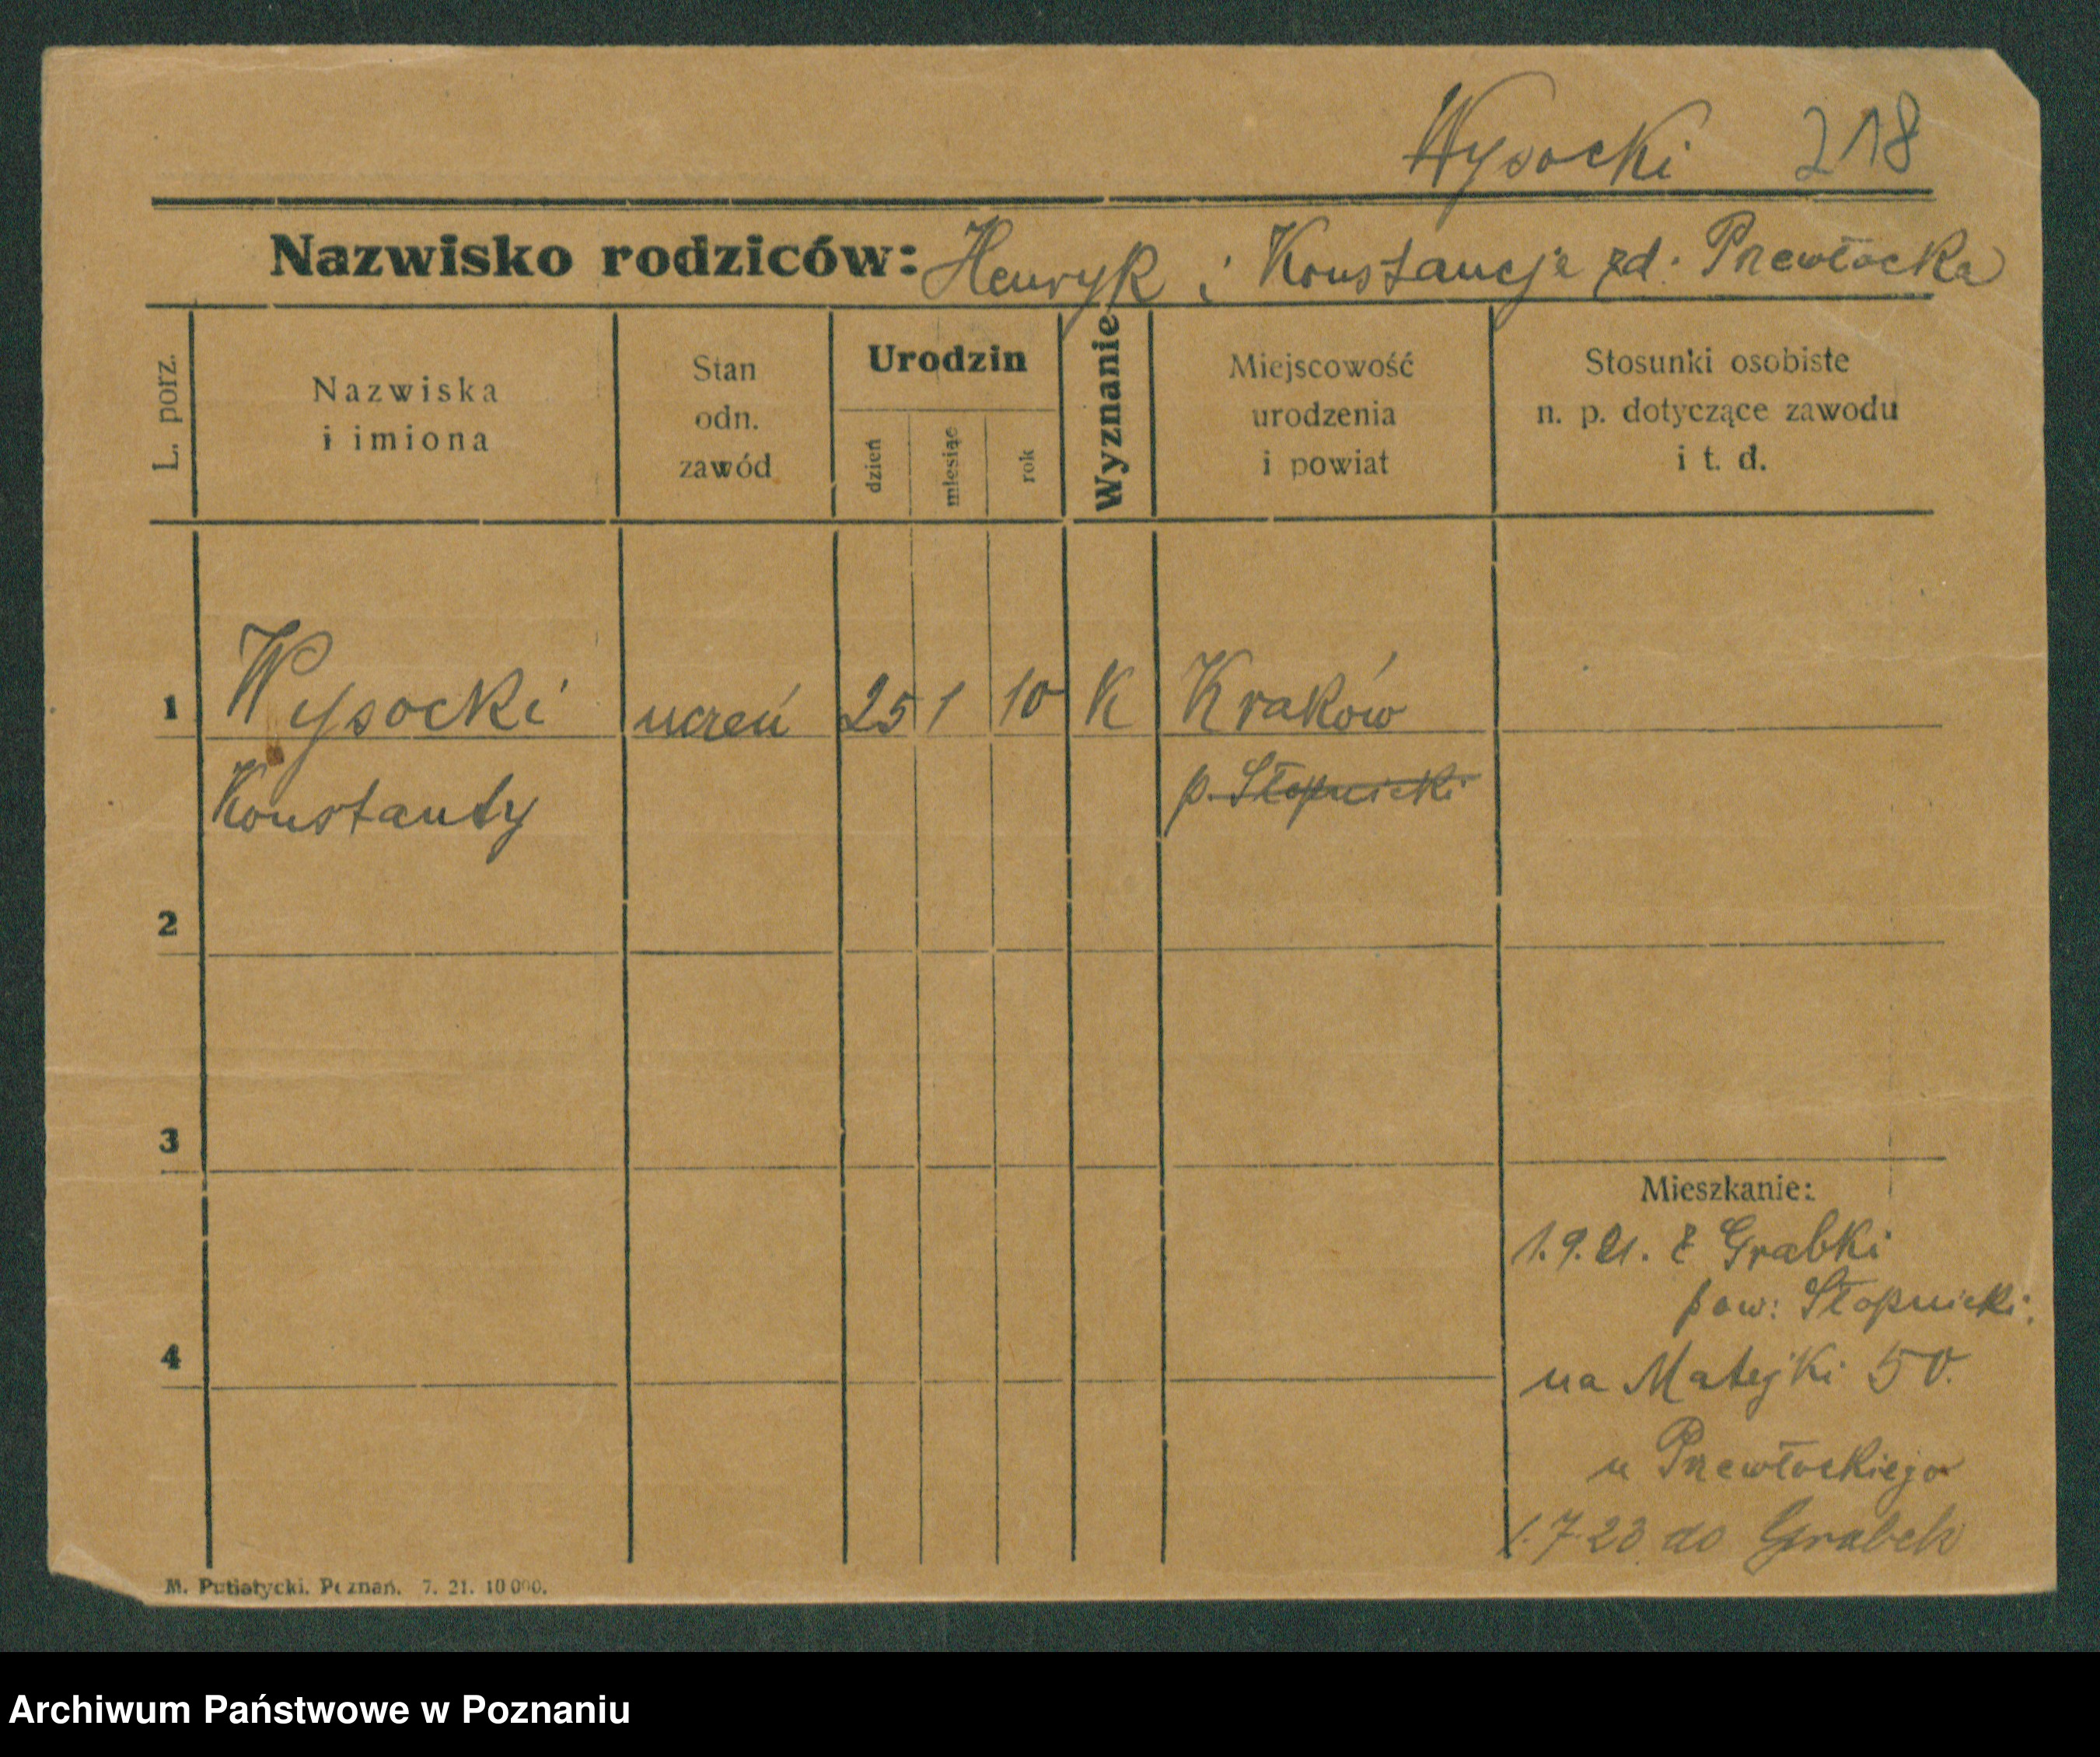 Wysocki 218
Nazwisko rodziców: Henryk i Konstancja zd. Przewłocka
L. porz.
Nazwiska
i imiona
Stan
odn.
zawód
Urodzin
dzień
miesiąc
rok
Wyznanie
Miejscowość
urodzenia
i powiat
Stosunki osobiste
n. p. dotyczące zawodu
i t. d.
1 Wysocki uczeń 25 1 10 K Kraków
Konstanty p. Stopnicki
2
3
Mieszkanie:
1.9.21. z Grabki
pow: Stopnicki.
4
na Matejki 50.
u Przewłockiego
1.7.23 do Grabek
M. Putiatycki. Poznań. 7. 21. 10 000.
Archiwum Państwowe w Poznaniu